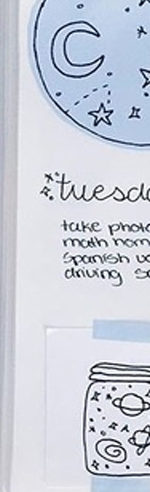 tuesd
take photo
math hom
Spanish vo
driving s